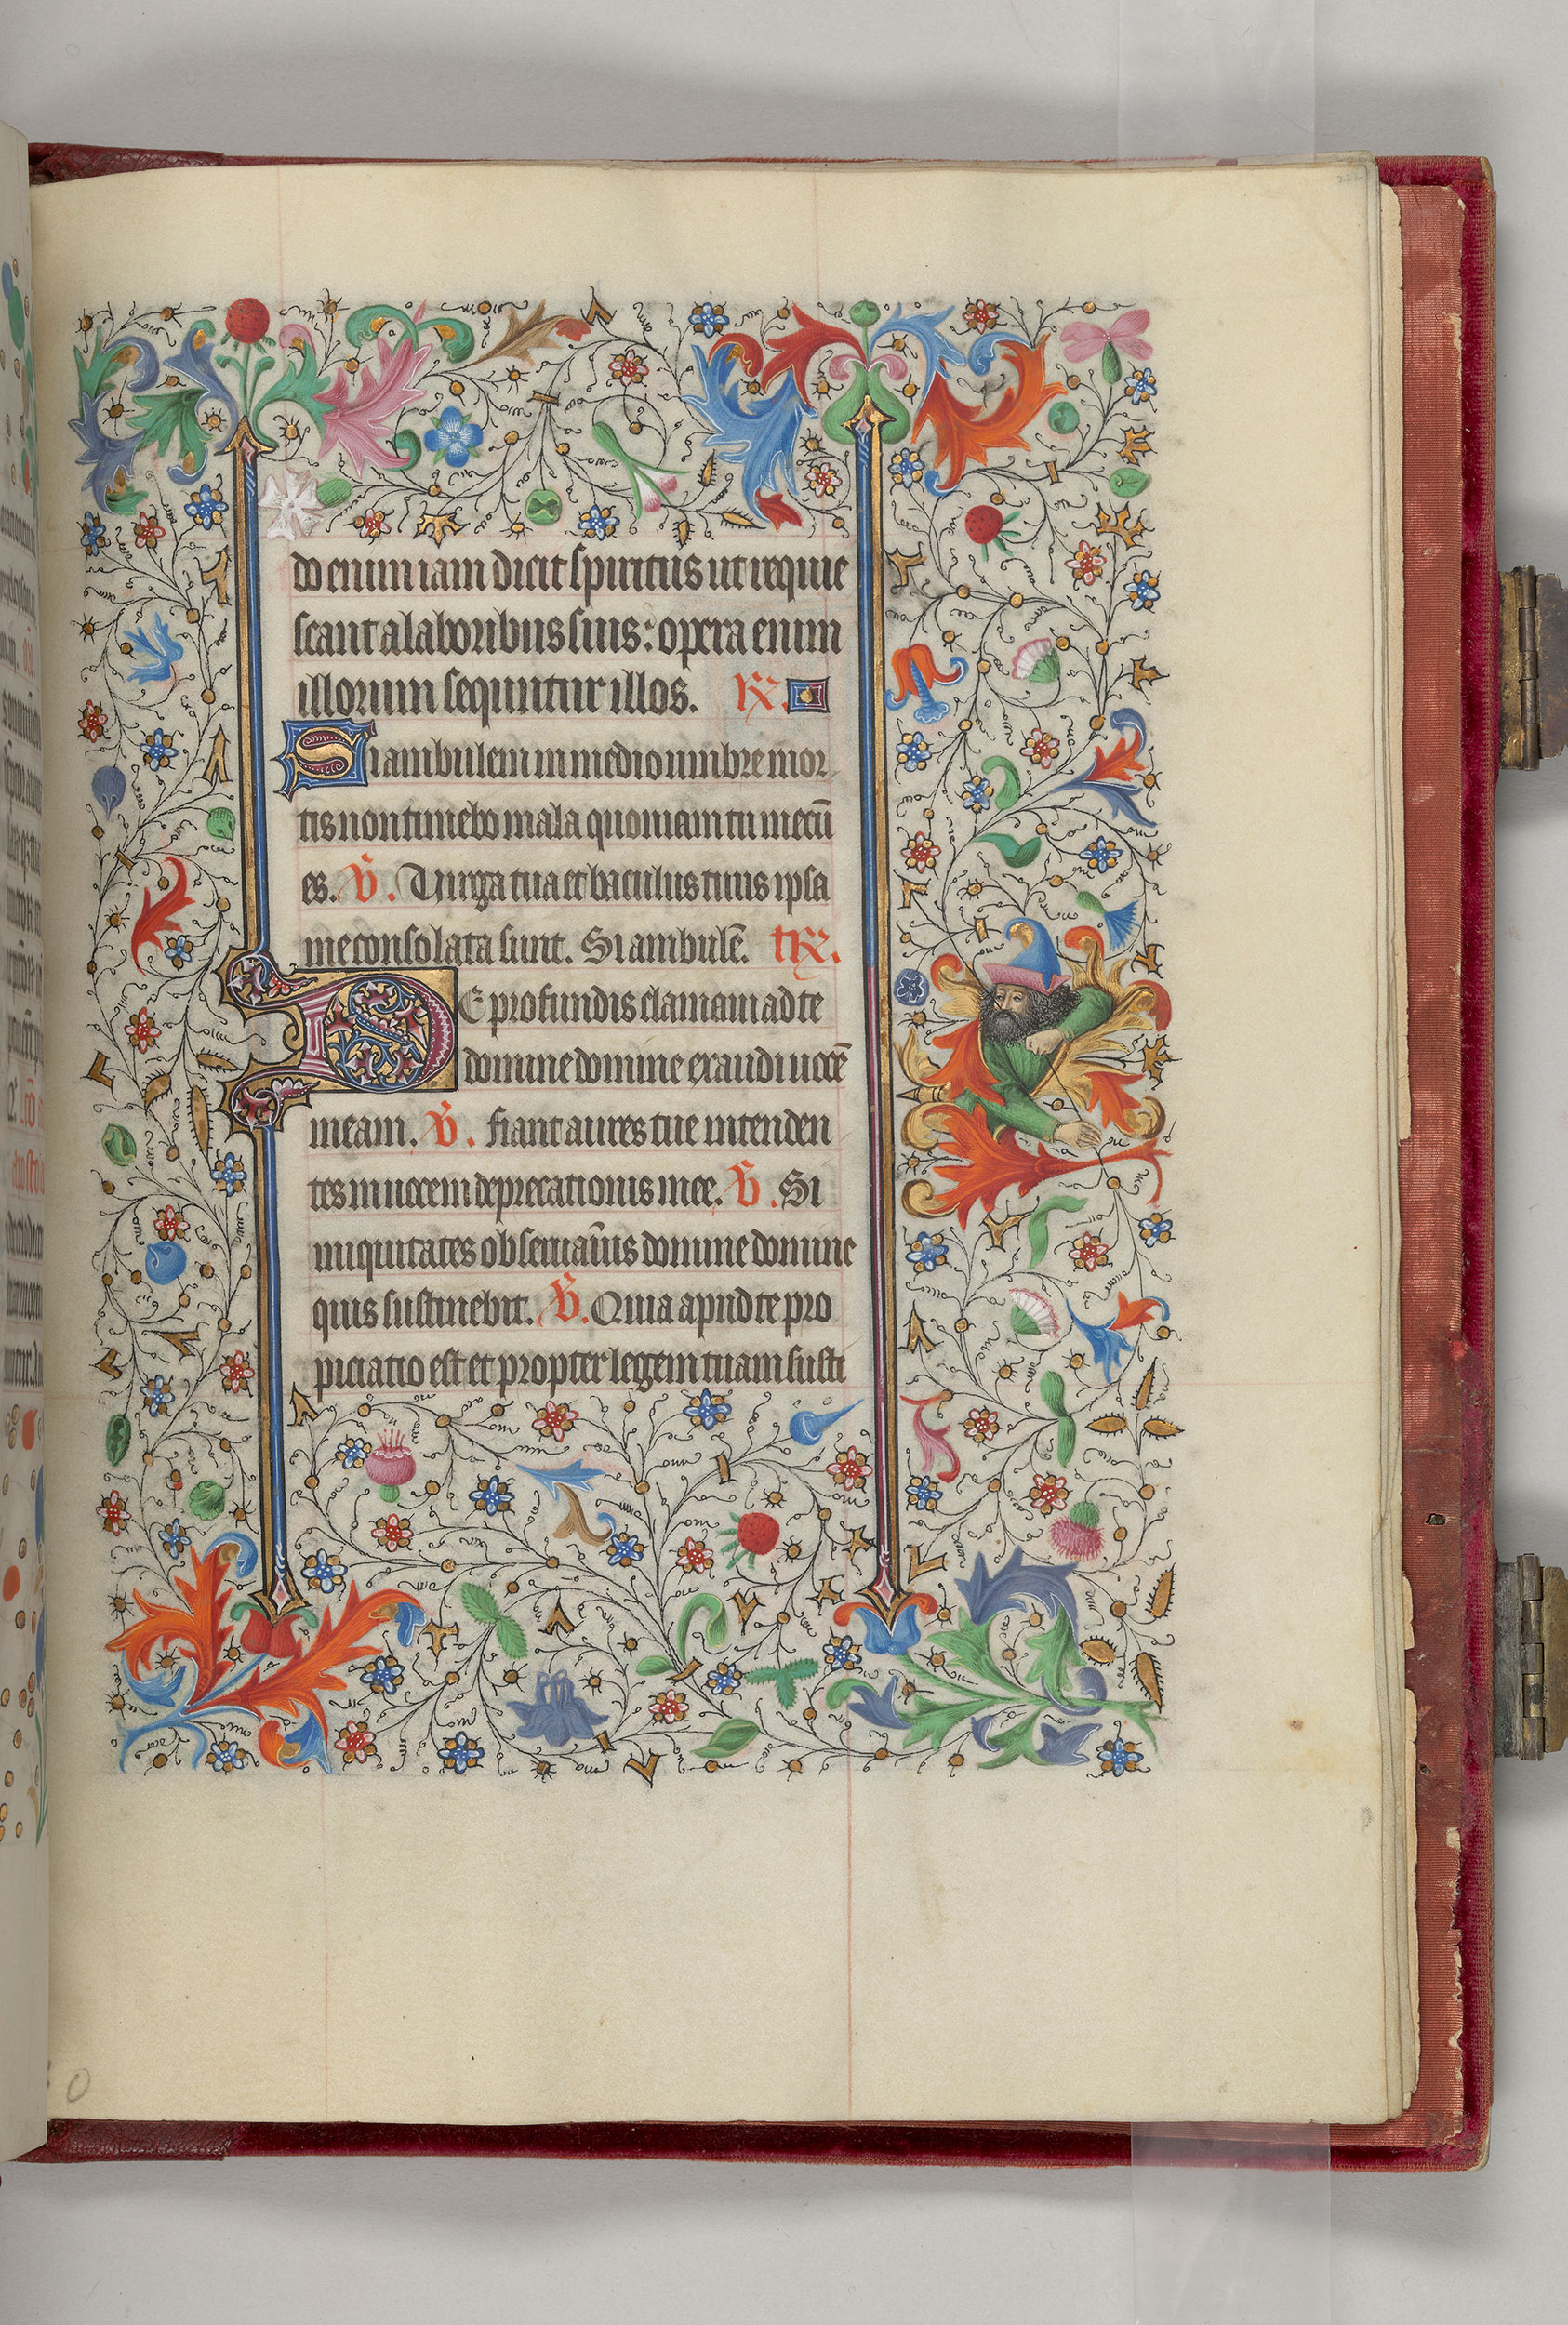 do enim iam dicit spiritus ut requie
scant a laboribus suis: opera enim
illorum sequntur illos. R̃.
Si ambulem in medio umbre mor
tis non timebo mala quoniam tu mecū
es. V̄. Virga tua et baculus tuus ipsa
me consolata sunt. Si ambulē. tR̃.
De profundis clamaui ad te
domine domine exaudi uocē
meam. V̄. fiant aures tue intenden
tes in uocem deprecationis mee. V̄. Si
iniquitates obseruaūis domine domine
quis sustinebit. V̄. Quia apud te pro
piciatio est et propter legem tuam susti